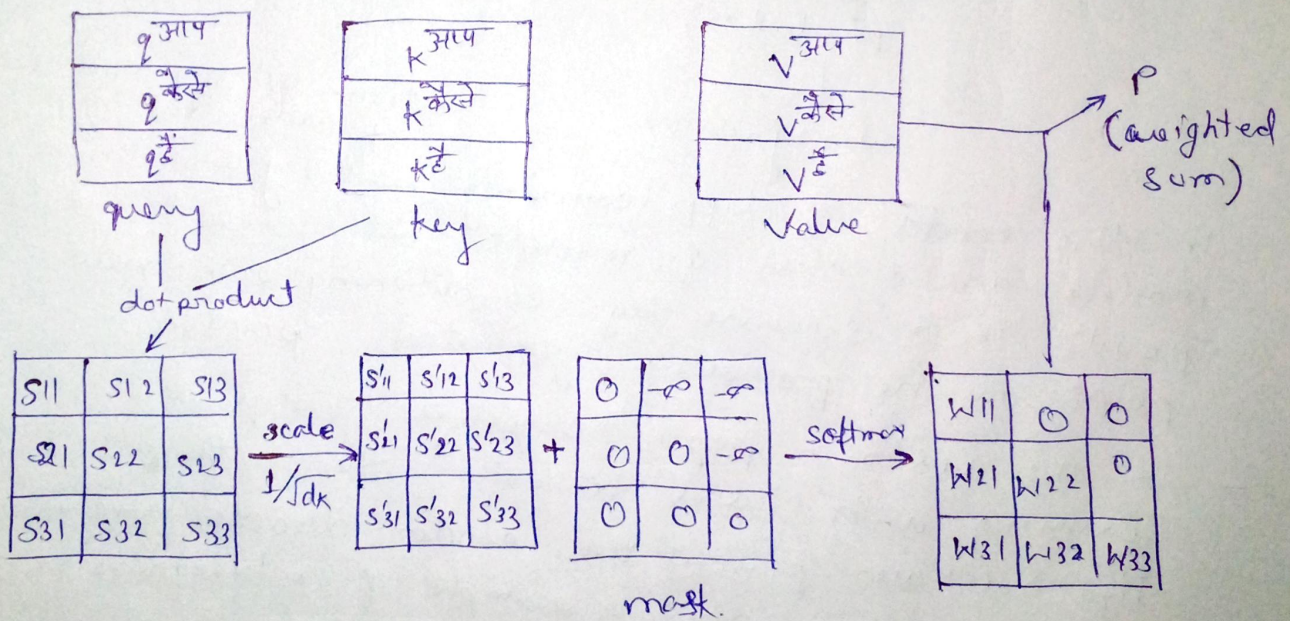 q आप
q कैसे
q हैं
query
k आप
k कैसे
k हैं
key
V आप
V कैसे
V हैं
Value
P
(weighted
sum)
dot product
S11 S12 S13
S21 S22 S23
S31 S32 S33
scale
1/√dk
S'11 S'12 S'13
S'21 S'22 S'23
S'31 S'32 S'33
+
0 -∞ -∞
0 0 -∞
0 0 0
mask.
softmax
W11 0 0
W21 W22 0
W31 W32 W33